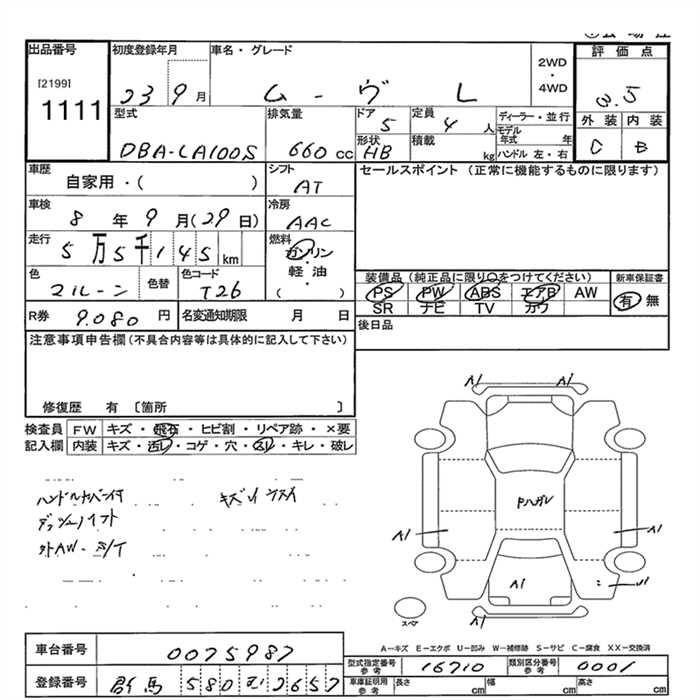 出品番号
[2199]
1111
初度登録年月
23 9月
車名・グレード
ムーヴ L
2WD
・
4WD
評価点
3.5
外装 内装
C B
型式
DBA-LA100S
排気量
660 cc
ドア
5
形状
HB
定員
4 人
積載
kg
ディーラー・並行
モデル
年式 年
ハンドル 左・右
車歴
自家用・( )
シフト
AT
セールスポイント (正常に機能するものに限ります)
車検
8 年 9 月(29日)
冷房
AAC
走行
5万5千145km
燃料
ガソリン
軽・油
( ・ )
色
マルーン
色替
色コード
T26
装備品(純正品に限り○をつけてください)
PS PW ABS エアB AW
SR ナビ TV カワ
新車保証書
有 無
R券
9.080 円
名変通知期限 月 日
後日品
注意事項申告欄(不具合内容等は具体的に記入して下さい)
修復歴 有 〔箇所 〕
検査員
記入欄
FW キズ・飛石・ヒビ割・リペア跡・×要
内装 キズ・汚レ・コゲ・穴・スレ・キレ・破レ
ハンドルカバー付
A1 A1
Fハガレ
A1 A1
A1
スペア
A1
A-キズ E-エクボ U-凹み W-補修跡 S-サビ C-腐食 XX-交換済
車台番号
0075987
登録番号
群馬 580 む 2657
型式指定番号
参考
16710
類別区分番号
参考
0001
車庫証明用
参考
長さ cm
幅 cm
高さ cm